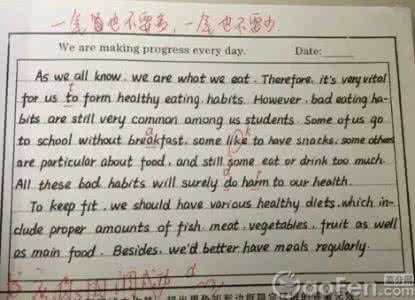 一个字也不要多，一个也不要少
We are making progress every day. Date:
As we all know, we are what we eat. Therefore, it's very vital
for us to form healthy eating habits. However, bad eating ha-
bits are still very common among us students. Some of us go
to school without breakfast, some like to have snacks, some others
are particular about food, and still some eat or drink too much.
All these bad habits will surely do harm to our health.
To keep fit, we should have various healthy diets, which in-
clude proper amounts of fish, meat, vegetables, fruit as well
as main food. Besides, we'd better have meals regularly.
GaoFen.com